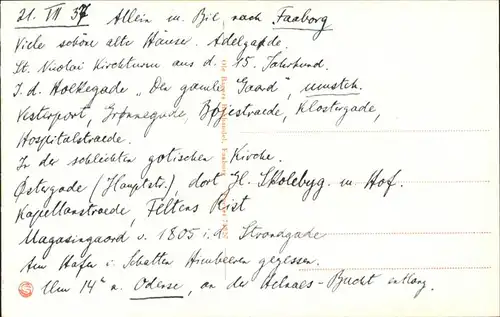 21. VII 37 Allein m. Bil. nach Faaborg
Viele schöne alte Häuser. Adelgade.
St. Nicolai Kirchturm aus d. 15. Jahrhund.
I. d. Holkegade „Den gamle Gaard",
Vesterport, Grønnegade, Bøjestraede, Klostergade,
Hospitalstraede.
In der schlichten gotischen Kirche.
Østergade (Hauptstr.), dort Gl. Skolebyg. m. Hof.
Kapellanstraede, Feltens Rist
Magasingaard v. 1805 i. d. Strandgade
Am Hafen i. Schatten Himbeeren gegessen.
Um 14h n. Odense, an der Helnaes-Bucht entlang.